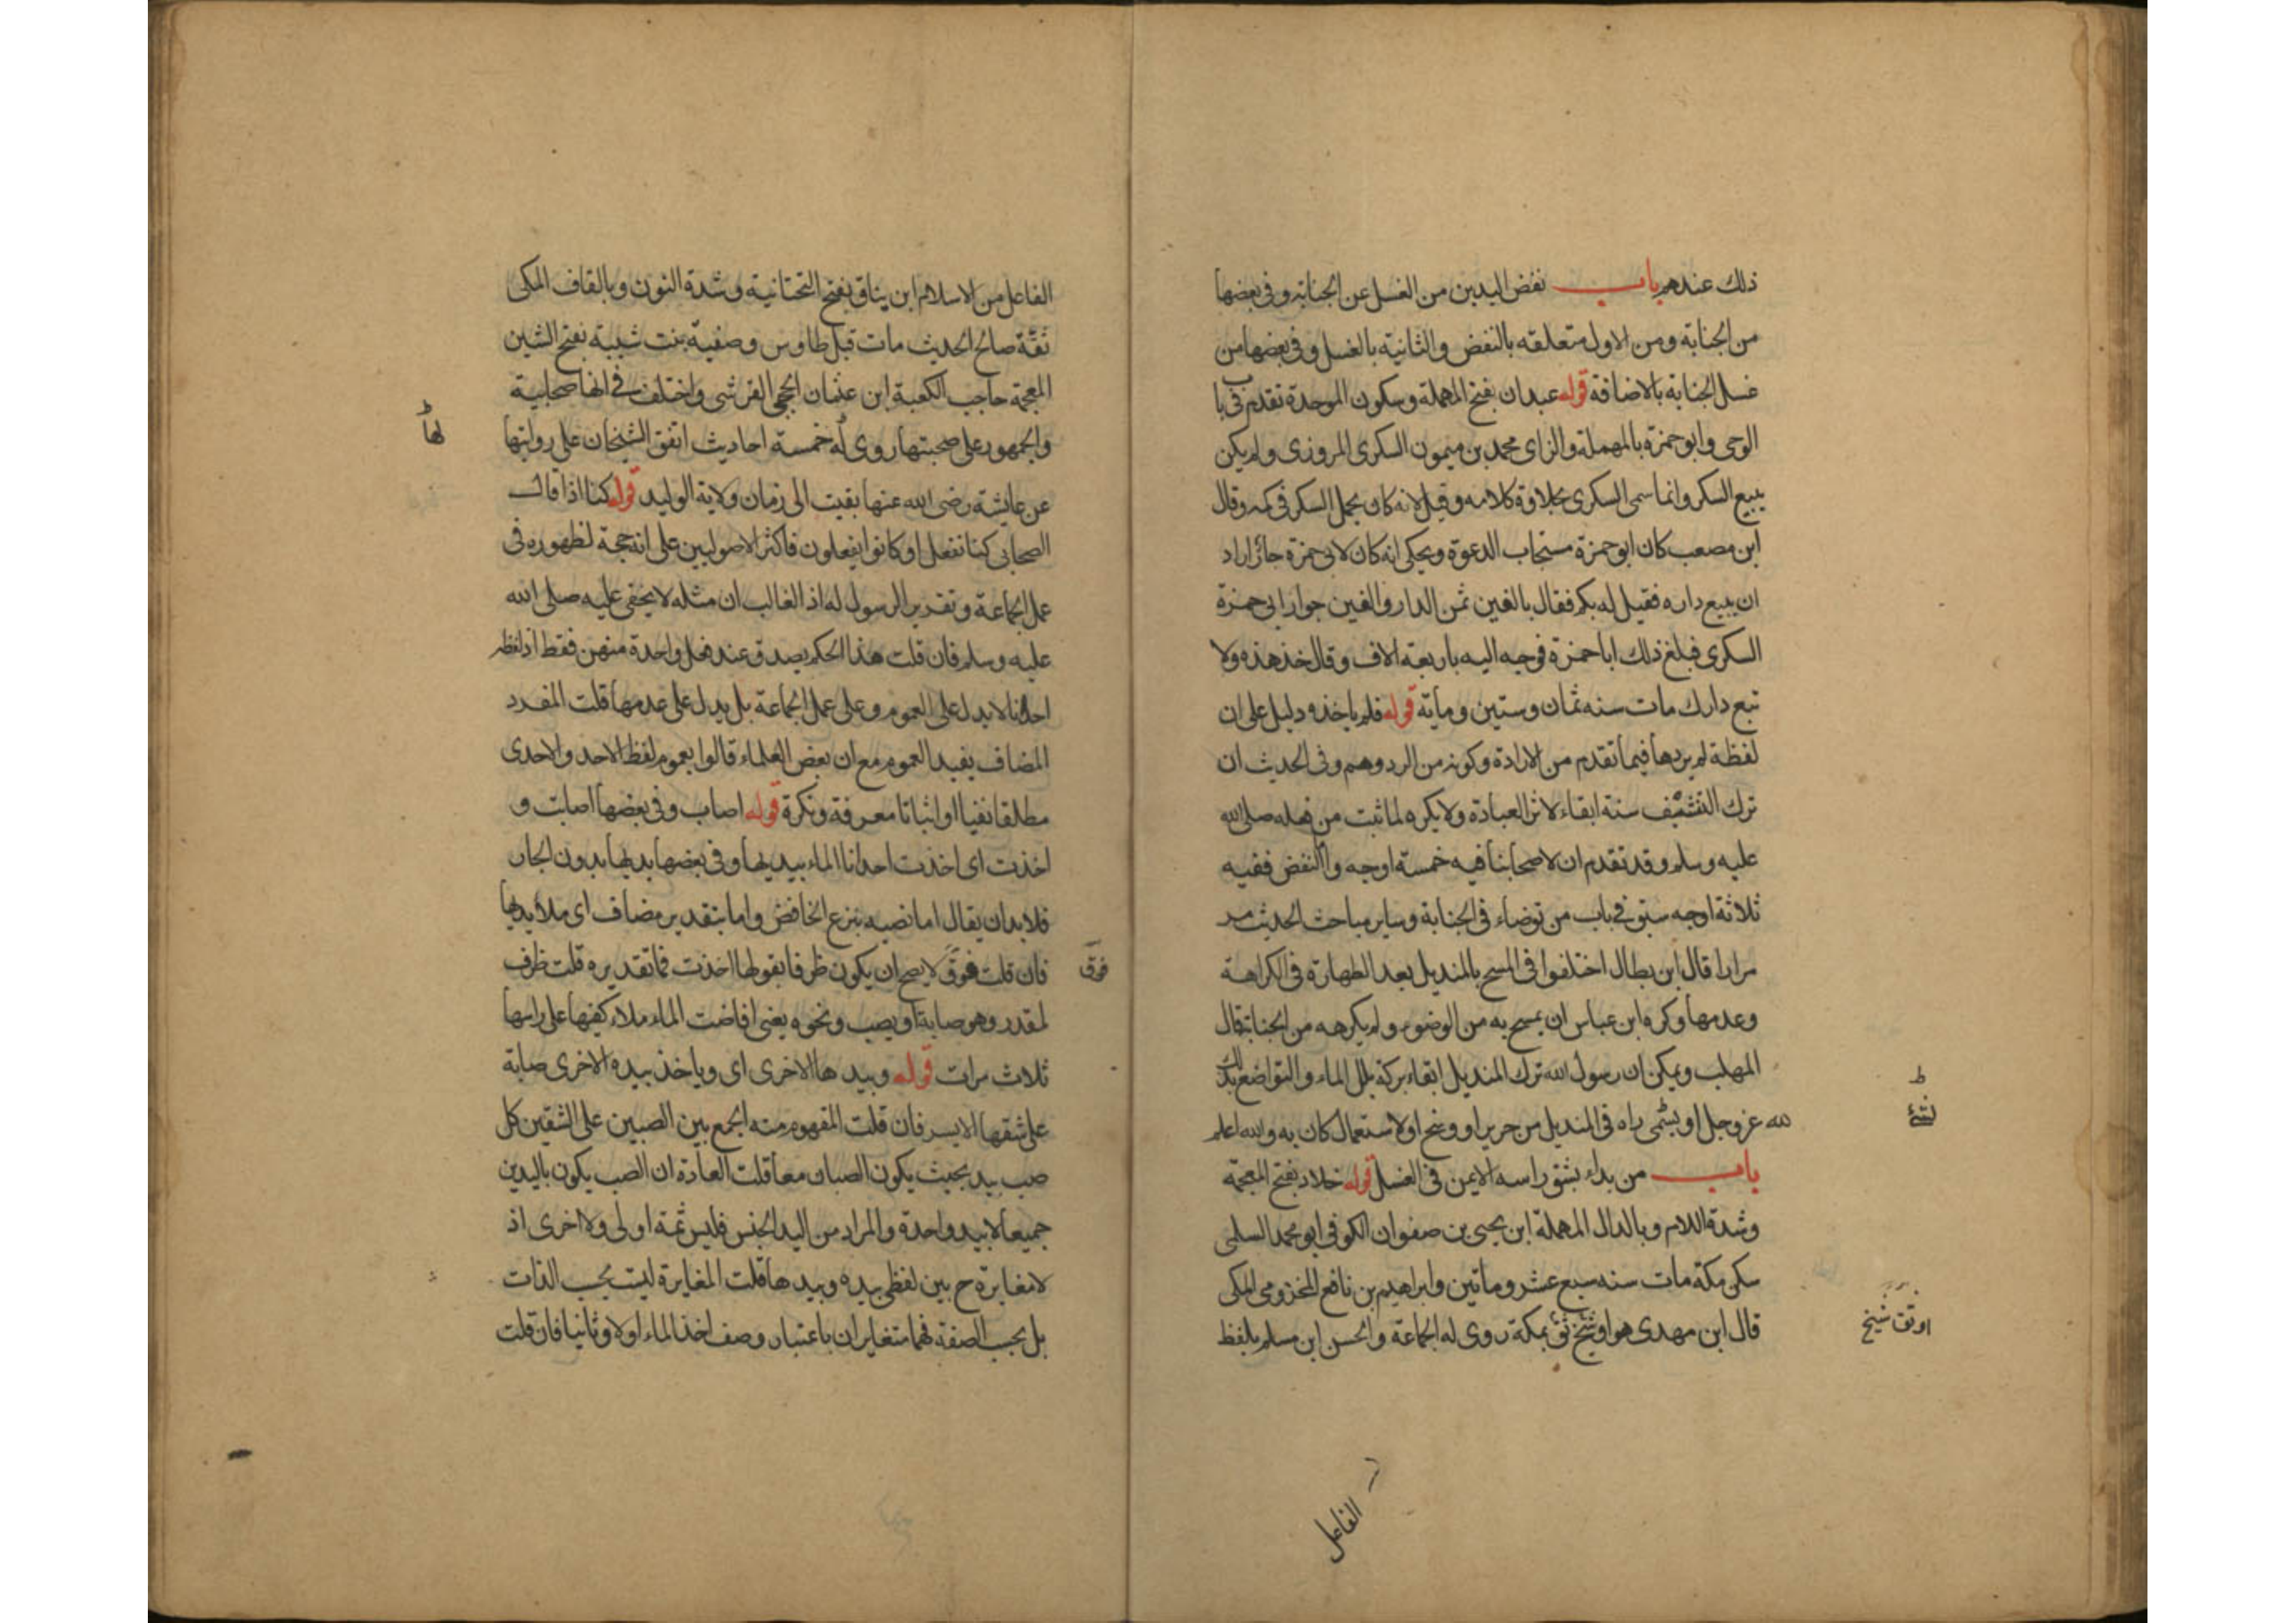 ذلك عندهم باب نفض اليدين من الغسل عن الجنابة وفي بعضها
من الجنابة ومن الاول متعلقه بالنفض والثانية بالغسل وفي بعضها من
غسل الجنابة بالاضافة قوله عبدان بفتح المهملة وسكون الموحدة تقدم في باب
الوحي وابو حمزة بالمهملة والزاى محمد بن ميمون السكرى المروزى ولم يكن
يبيع السكر وانما سمى السكرى لحلاوة كلامه وقيل لانه كان يحمل السكر في كمه وقال
ابن مصعب كان ابو حمزة مستجاب الدعوة ويحكى انه كان لابى حمزة جار اراد
ان يبيع داره فقيل له بكم فقال بالفين ثمن الدار والفين جوار ابى حمزة
السكرى فبلغ ذلك ابا حمزة فوجه اليه باربعة الاف وقال خذ هذه ولا
تبع دارك مات سنه ثمان وستين ومأية قوله فلم ياخذه دليل على ان
لفظة لم يردها فيما تقدم من الارادة وكونه من الرد وهم وفى الحديث ان
ترك التنشيف سنة ابقاء لاثر العبادة ولا يكره لما ثبت من فعله صلى الله
عليه وسلم وقد تقدم ان لاصحابنا فيه خمسة اوجه واما النفض ففيه
ثلاثة اوجه سبق في باب من توضاء في الجنابة وساير مباحث الحديث مر
مرارا قال ابن بطال اختلفوا فى المسح بالمنديل بعد الطهارة فى الكراهة
وعدمها وكره ابن عباس ان يمسح به من الوضوء ولم يكرهه من الجنابة قال
المهلب ويمكن ان رسول الله ترك المنديل ابقاء بركة بلل الماء والتواضع بذلك
لله عز وجل او لشئ راه فى المنديل من حرير او وسخ او لاستعجال كان به والله اعلم
لشئ
باب من بداء بشق راسه الايمن فى الغسل قوله خلاد بفتح المعجمة
وشدة اللام وبالدال المهملة ابن يحيى بن صفوان الكوفى ابو محمد السلمى
سكن مكة مات سنه سبع عشر وماتين وابراهيم بن نافع المخزومى المكى
قال ابن مهدى هو اوثق شيخ بمكة روى له الجماعة والحسن ابن مسلم بلفظ
اوثق شيخ
الفاعل
الفاعل من الاسلام ابن يناق بفتح التحتانية وشدة النون وبالقاف المكى
ثقة صالح الحديث مات قبل طاوس وصفية بنت شيبة بفتح الشين
المعجمة حاجب الكعبة ابن عثمان الحجبى القرشى واختلف في انها صحابية
والجمهور على صحبتها روى له خمسة احاديث اتفق الشيخان على روايتها
لها
عن عايشة رضى الله عنها بقيت الى زمان ولاية الوليد قوله كنا اذا قال
الصحابى كنا نفعل او كانوا يفعلون فاكثر الاصوليين على انه حجة لظهوره فى
عمل الجماعة وتقدير الرسول له اذ الغالب ان مثله لا يخفى عليه صلى الله
عليه وسلم فان قلت هذا الحكم يصدق عند فعل واحدة منهن فقط اذ لفظ
احدانا لا يدل على العموم وعلى عمل الجماعة بل يدل على عدمها قلت المفرد
المضاف يفيد العموم مع ان بعض العلماء قالوا بعموم لفظ الاحد والاحدى
مطلقا نفيا او اثباتا معرفة ونكرة قوله اصاب وفى بعضها اصابت و
اخذت اى اخذت احدانا الماء بيديها وفى بعضها يديها بدون الجار
فلا بد ان يقال اما نصبه بنزع الخافض واما بتقدير مضاف اى ملأ يديها
فان قلت فوق لا يصح ان يكون ظرفا بقولها اخذت فما تقديره قلت ظرف
فوق
لمقدر وهو صابة او يصب ونحوه يعنى افاضت الماء ملاء كفيها على راسها
ثلاث مرات قوله وبيدها الاخرى اى وياخذ بيده الاخرى صابة
على شقها الايسر فان قلت المفهوم منه الجمع بين الصبين على الشقين كل
صب بيد بحيث يكون الصبان معا قلت العادة ان الصب يكون باليدين
جميعا لا بيد واحدة والمراد من اليد الجنس فليس ثمة اولى ولا اخرى اذ
لا مغايرة ح بين لفظى بيده وبيدها قلت المغايرة ليست بحسب الذات
بل بحسب الصفة فهما متغايران باعتبار وصف اخذ الماء اولا وثانيا فان قلت